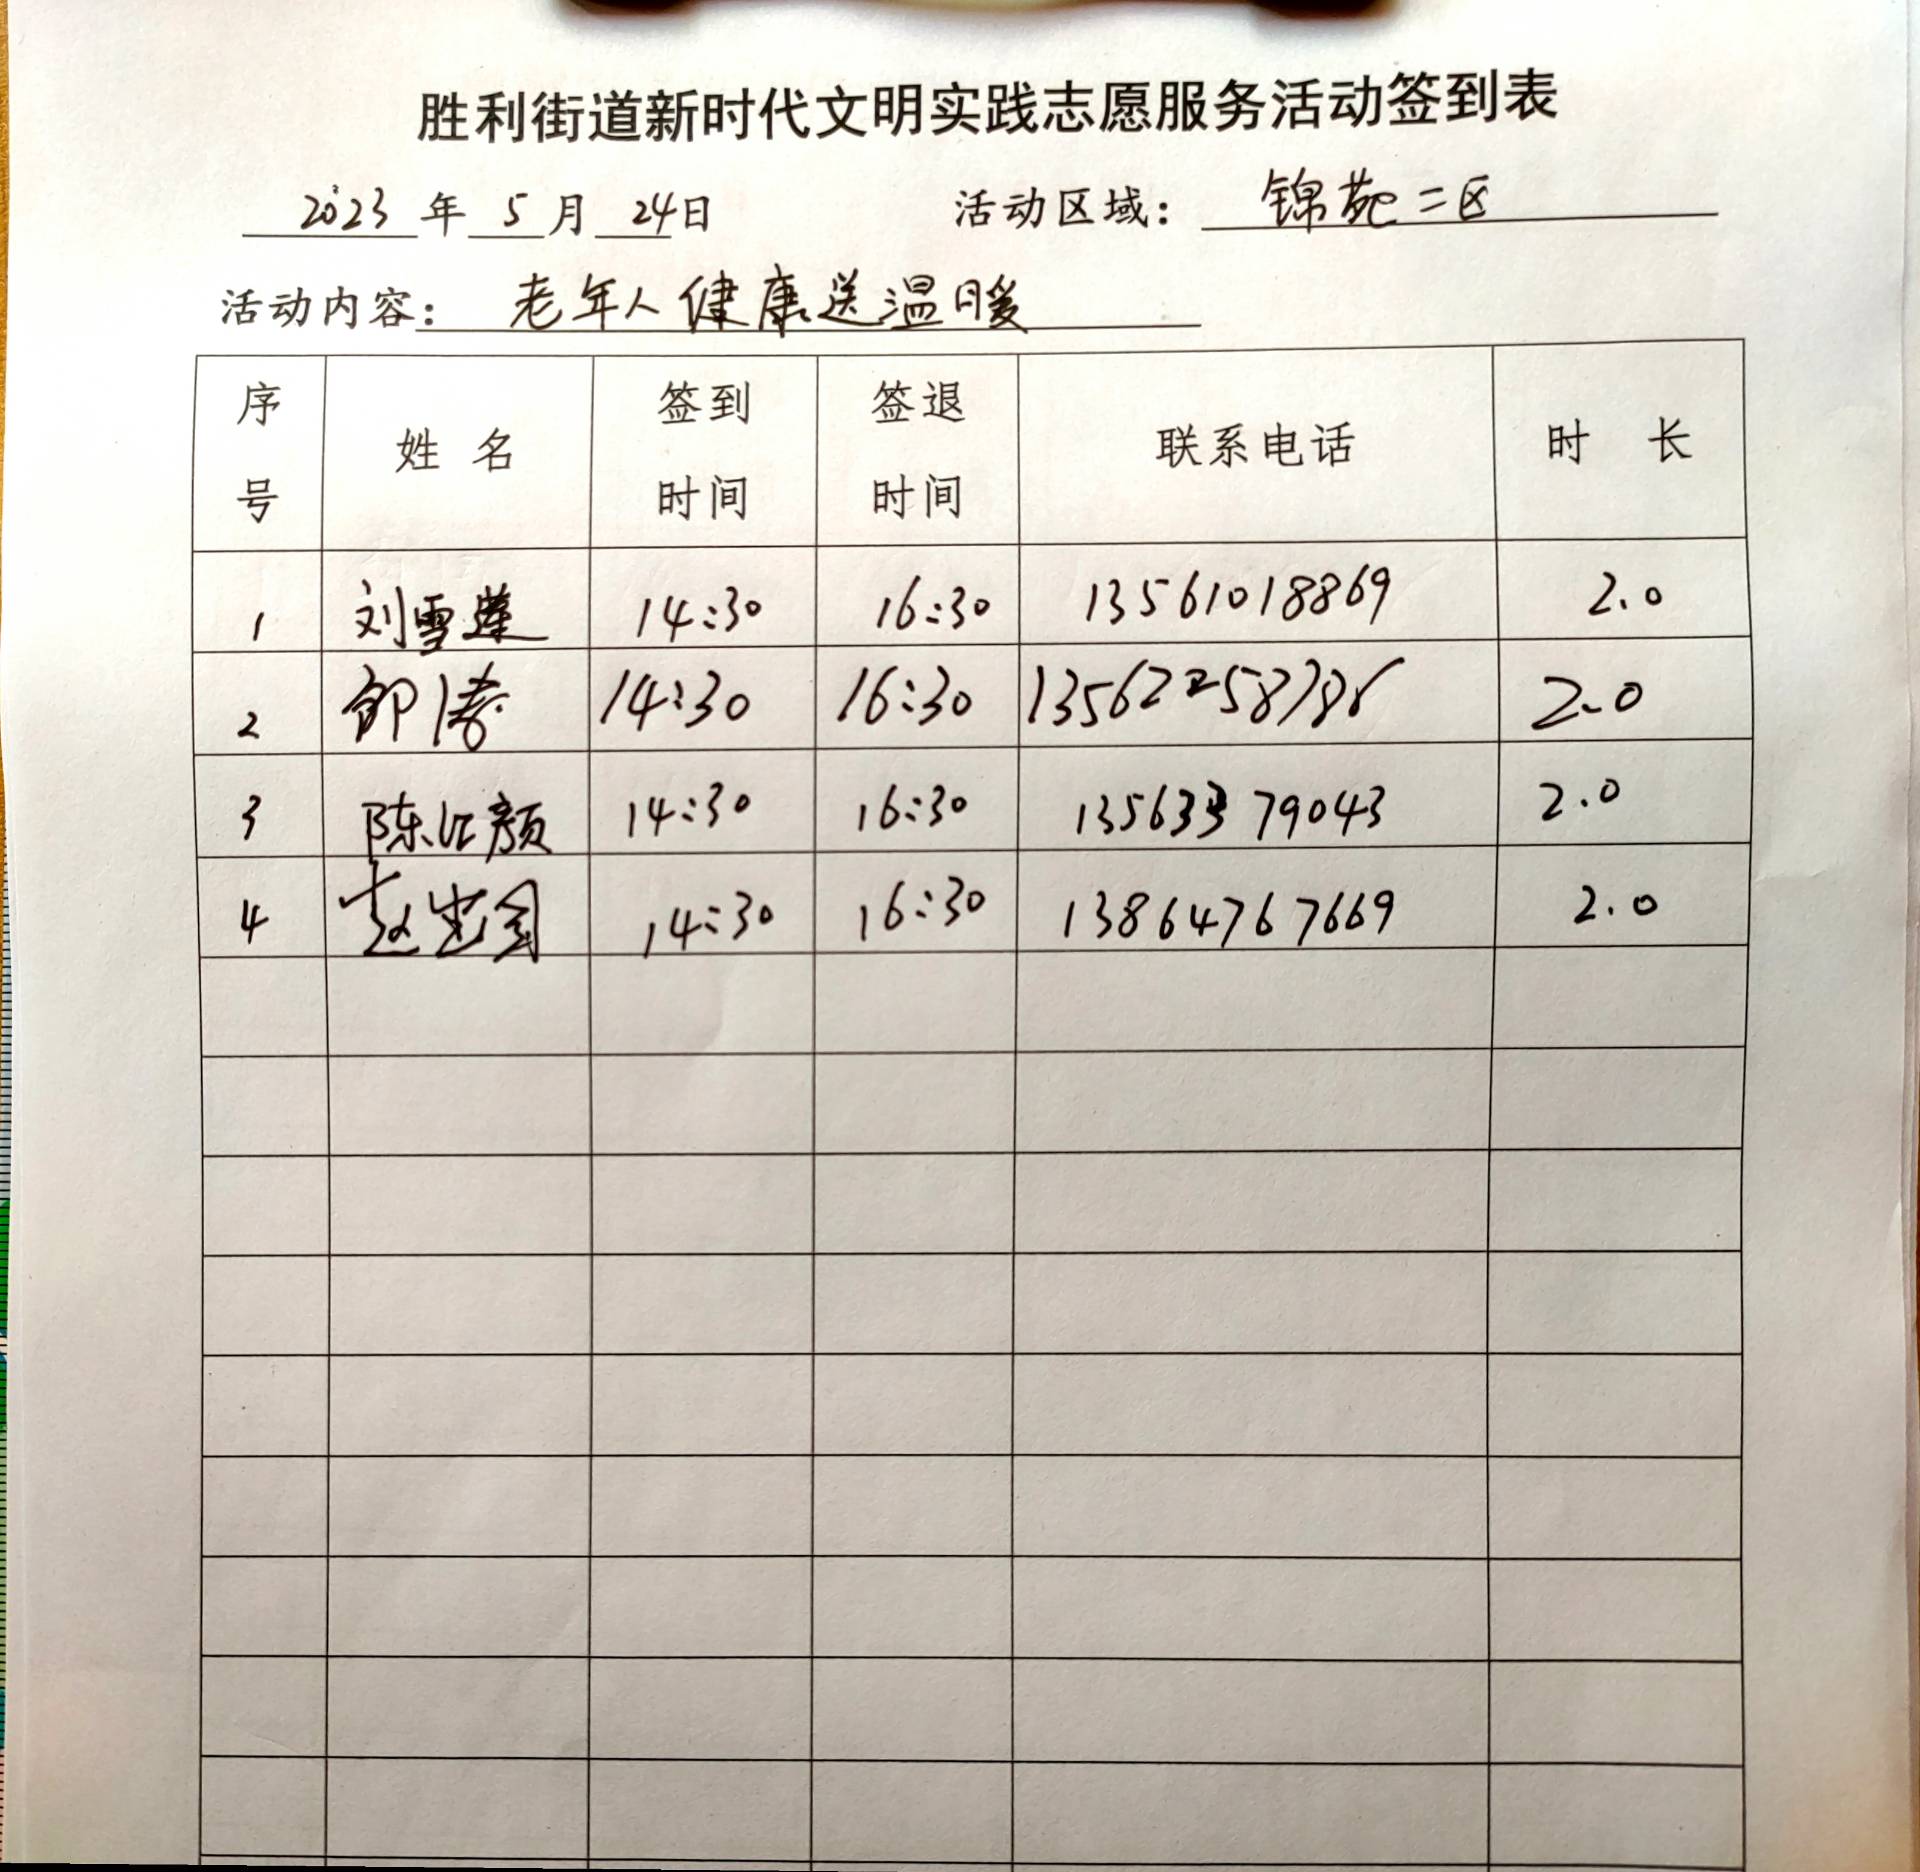 胜利街道新时代文明实践志愿服务活动签到表
2023 年 5 月 24日 活动区域： 锦苑二区
活动内容： 老年人健康送温暖
序号 姓名 签到时间 签退时间 联系电话 时 长
1 刘雪莲 14:30 16:30 13561018869 2.0
2 14:30 16:30 2.0
3 14:30 16:30 13563379043 2.0
4 14:30 16:30 13864767669 2.0